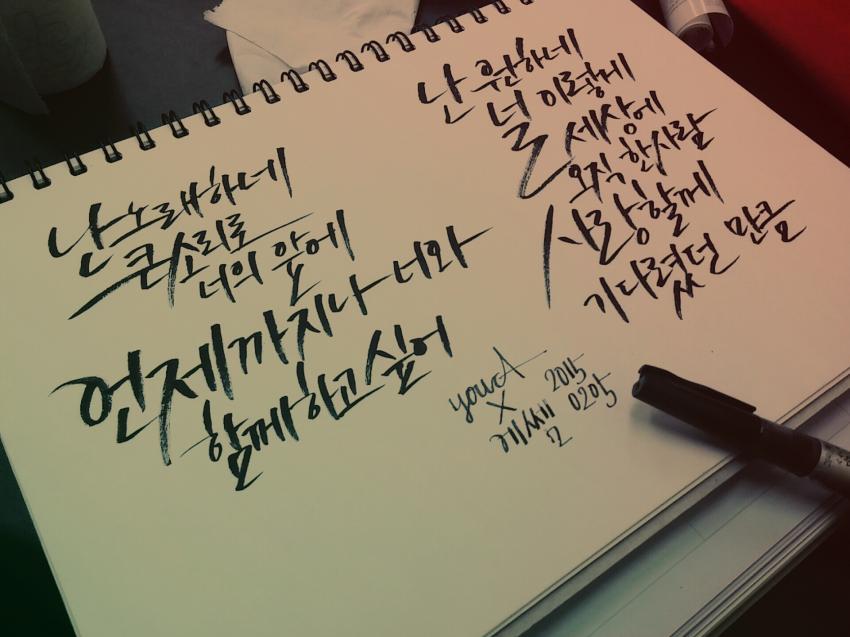 난 노래하네
큰 소리로
너의 앞에
언제까지나 너와
함께하고 싶어
난 원하네
널 이렇게
세상에
오직 한사람
사랑할께
기다렸던 만큼
youcA 2015
X 0205
에쎌